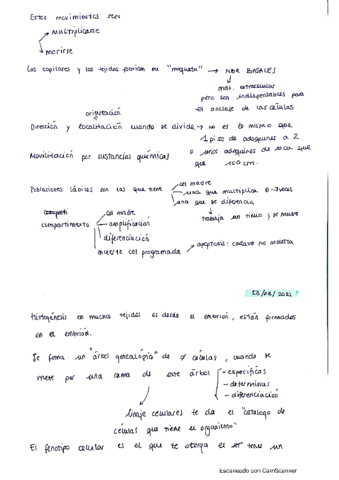 Estos movimientos son
→ multiplicarse
→ morirse
Los capilares y los tejidos forman su "maqueta" → MBR BASALES
mat. extracelular
pero son indispensables para
el anclaje de las células
orientación
Dirección y localización cuando se divide → no es lo mismo que
1 piso de adoquines a 2
Movilización por sustancias químicas
o unos adoquines de 20 cm que
que 100 cm.
Poblaciones lábiles son las que tiene
cel madre
una que multiplica 6-7 veces
una que se diferencia
trabaja un tiempo y se muere
compartimento
cel madre
amplificación
diferenciación
muerte cel programada → apoptosis: cadavo no molesta
23/03/2021
Histogénesis en muchos tejidos es desde el embrión, están formados
en el embrión.
Se forma un "árbol genealógico" de ≠ células, cuando se
mete por una rama de este árbol
- especificas
- determinas
- diferenciación
linaje celulares te da el "catalogo de
células que tiene el organismo"
El fenotipo celular es el que te otorga el ser tener un
Escaneado con CamScanner